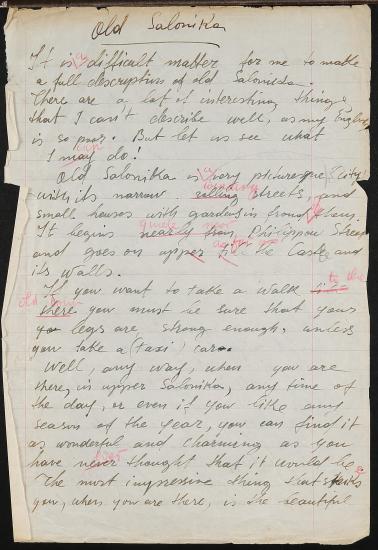 Old Salonika
It is a difficult matter for me to make
a full description of old Salonika.
There are a lot of interesting things
that I can't describe well, as my english
is so poor. But let us see what
I may can do!
Old Salonika is a very picturesque city
with its narrow winding streets, and
small houses with gardens in front
It begins nearly from Philippou Street
and goes on upper the Castle and
its walls.
If you want to take a walk to the
Old town there you must be sure that your
legs are strong enough, unless
you take a (taxi) car.
Well, any way, when you are
there, in upper Salonika, any time of
the day, or even if you like any
season of the year, you can find it
as wonderful and charming as you
have never thought that it would be.
The most impressive thing that strikes
you, when you are there, is the beautiful